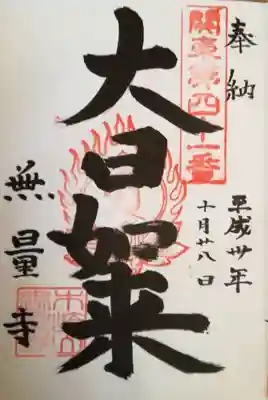 奉納
関東第四十一番
平成卅年
十月廿八日
大日如来
無量寺